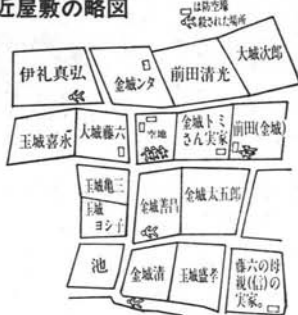 近屋敷の略図
□は防空壕
殺された場所
大城次郎
伊礼真弘
金城ンタ
前田清光
玉城喜永
大城藤六
空地
金城トミさん実家
前田(金城)
玉城亀三
玉城ヨシ子
金城善昌
金城太五郎
池
金城清
玉城盛孝
藤六の母親(信)の実家。